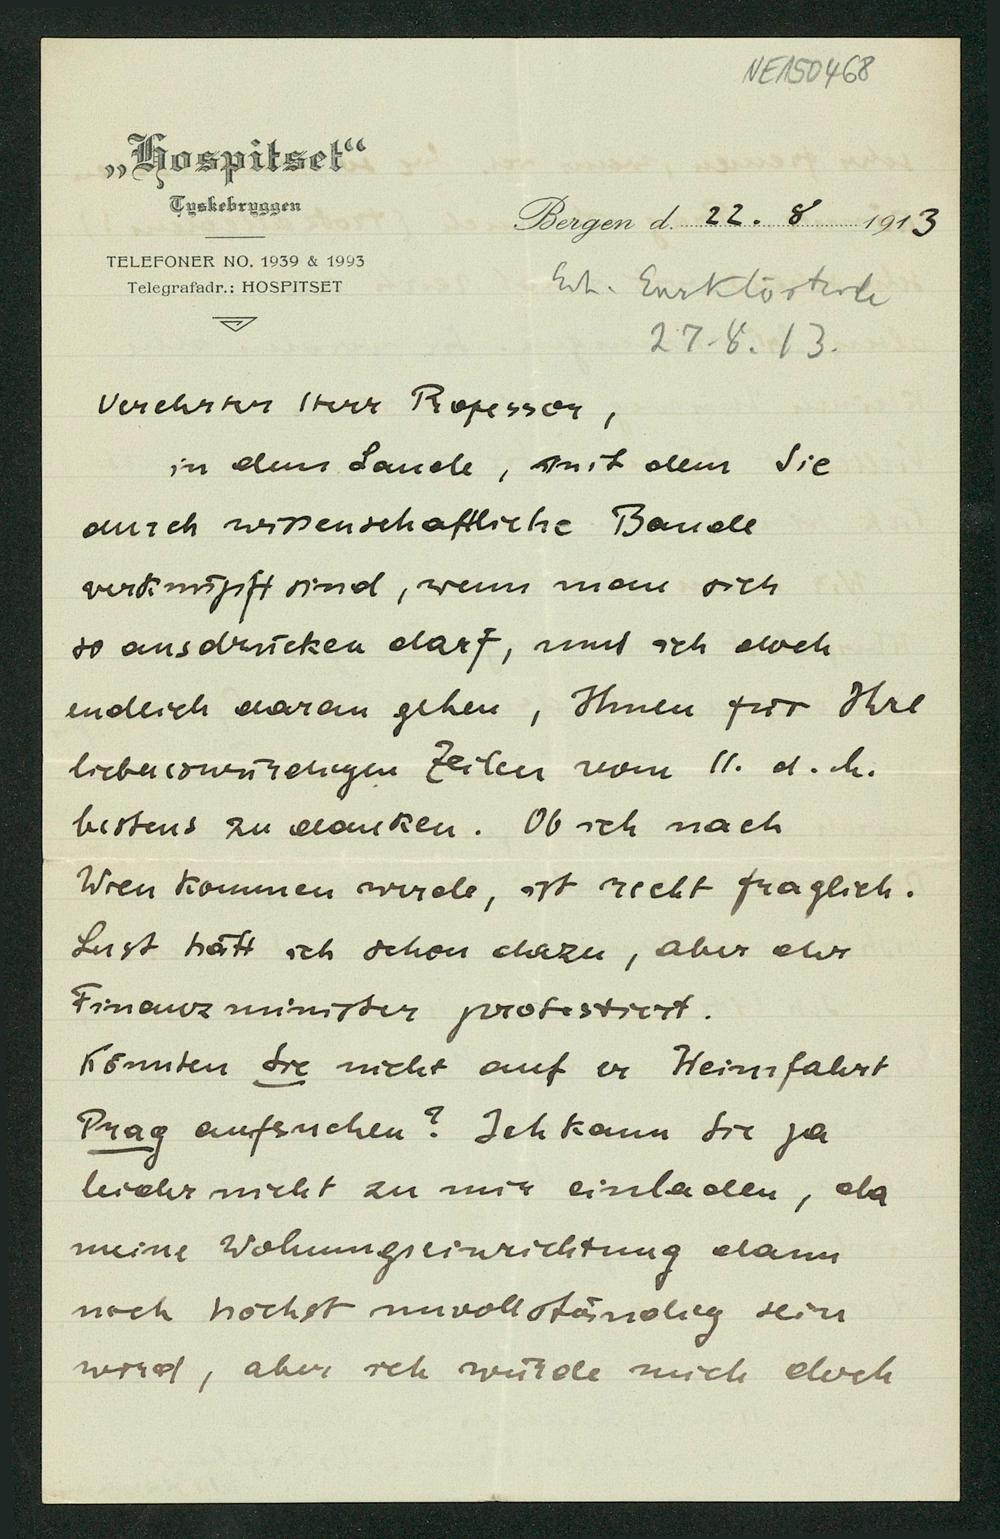 NE150468
„Hospitset“
Tyskebryggen
TELEFONER NO. 1939 & 1993
Telegrafadr.: HOSPITSET
Bergen d. 22. 8 1913
Erh.
27.8.13.
Verehrter Herr Professor,
in dem Lande, mit dem Sie
durch wissenschaftliche Bande
verknüpft sind, wenn man sich
so ausdrücken darf, muß ich doch
endlich daran gehen, Ihnen für Ihre
liebenswürdigen Zeilen vom 11. d. M.
bestens zu danken. Ob ich nach
Wien kommen werde, ist recht fraglich.
Lust hätt ich schon dazu, aber der
Finanzminister protestiert.
Könnten Sie nicht auf er Heimfahrt
Prag aufsuchen? Ich kann Sie ja
leider nicht zu mir einladen, da
meine Wohnungseinrichtung dann
noch höchst unvollständig sein
wird, aber ich würde mich doch